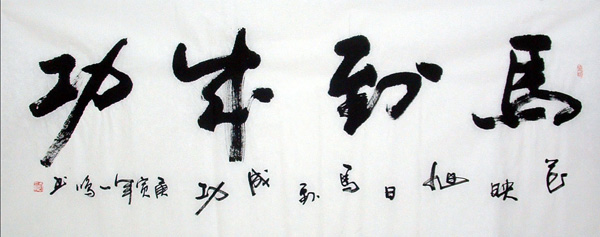 馬到成功
映旭日馬到成功庚寅年一鳴书